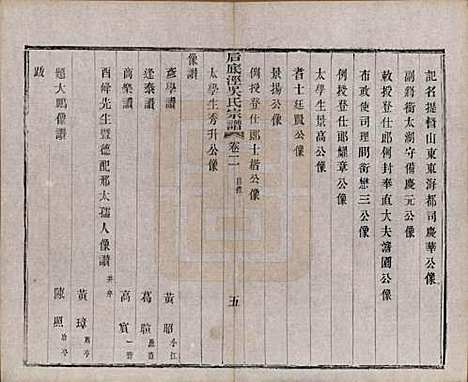 記名提督山東東海都司慶華公像
副將銜太湖守備慶元公像
例授登仕郎例封奉直大夫讓園公像
布政使司理問銜懋三公像
例授登仕郎耀章公像
太學生景高公像
耆士廷賢公像
例授登仕郎士楷公像
景揚公像
太學生秀升公像
后底涇吳氏宗譜 卷二 目錄 五
像讚
彥學像讚 黃昭 小江
達泰像讚 葛暄
高樂像讚 高賓 一齋
酉峰先生暨德配邢太孺人像讚 并序 黃璋
題大鵬像讚 陳照
跋